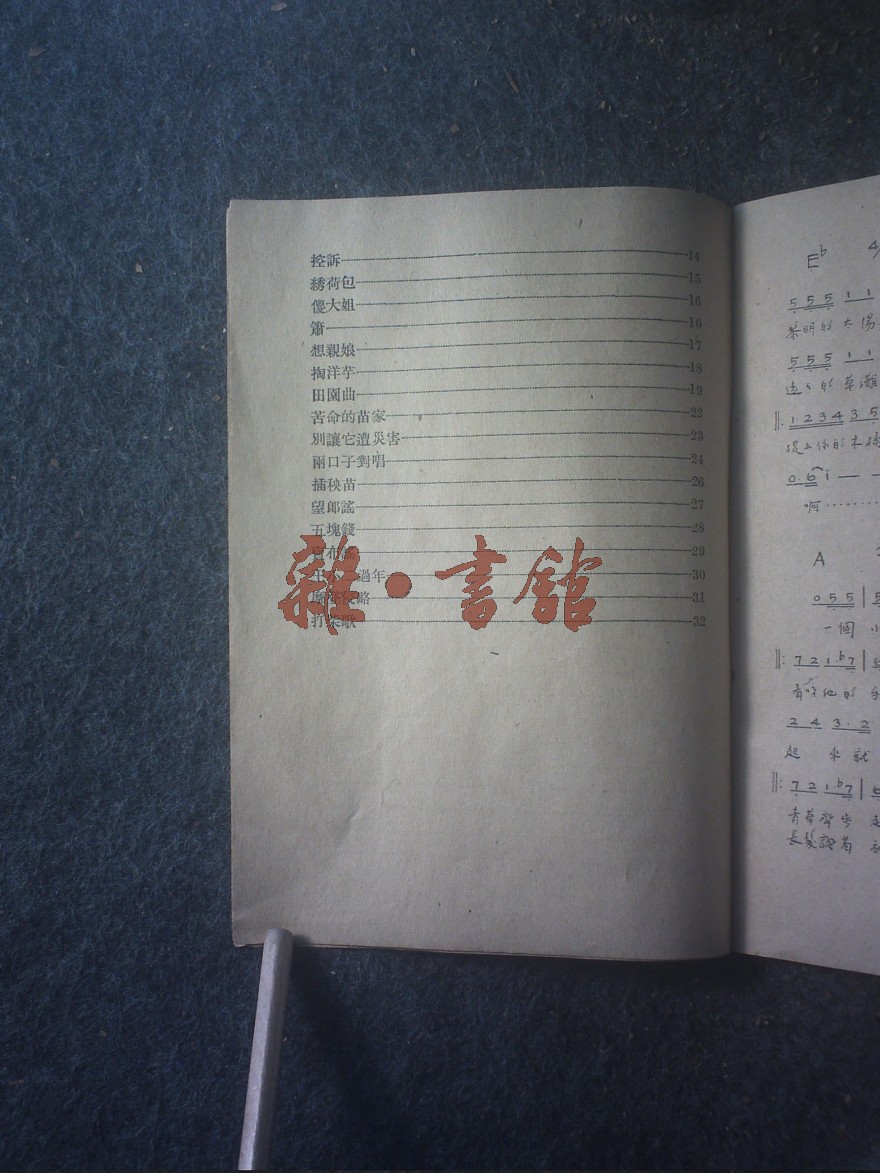 控訴 14
綉荷包 15
傻大姐 16
簫 16
想親娘 17
掏洋芋 18
田園曲 19
苦命的苗家 22
別讓它遭災害 23
兩口子對唱 24
插秧苗 26
望郎謠 27
五塊錢 28
賣布謠 29
過年 30
侵略 31
打柴歌 32
雜·書館
E♭ 4/
5 5 5 1 1
黎明的太陽
5 5 5 1 1
遠遠的草灘
‖: 1 2 3 4 3 5
提上你的木桶
0. 6 i — -
啊………
A
0 5 5 | 5
一個 小
‖: 7 2 1. ♭7 |
看唉他的
2 4 3. 2
起 來就
‖: 7 2 1. ♭7 |
青草
長髮